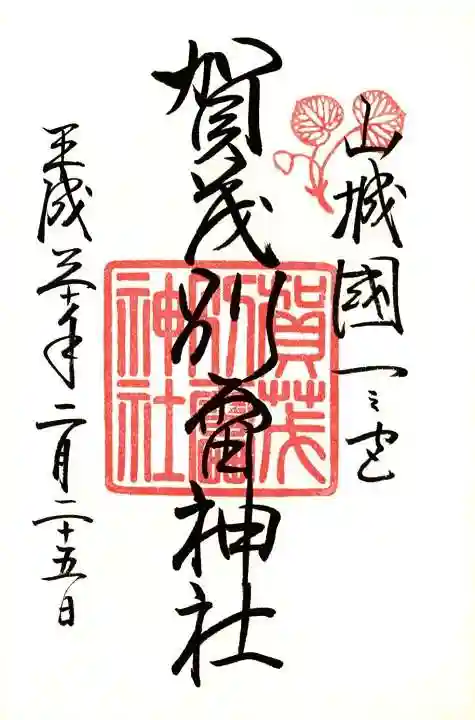 山城國一之宮
賀茂別雷神社
賀茂別雷神社
平成三十年二月二十五日